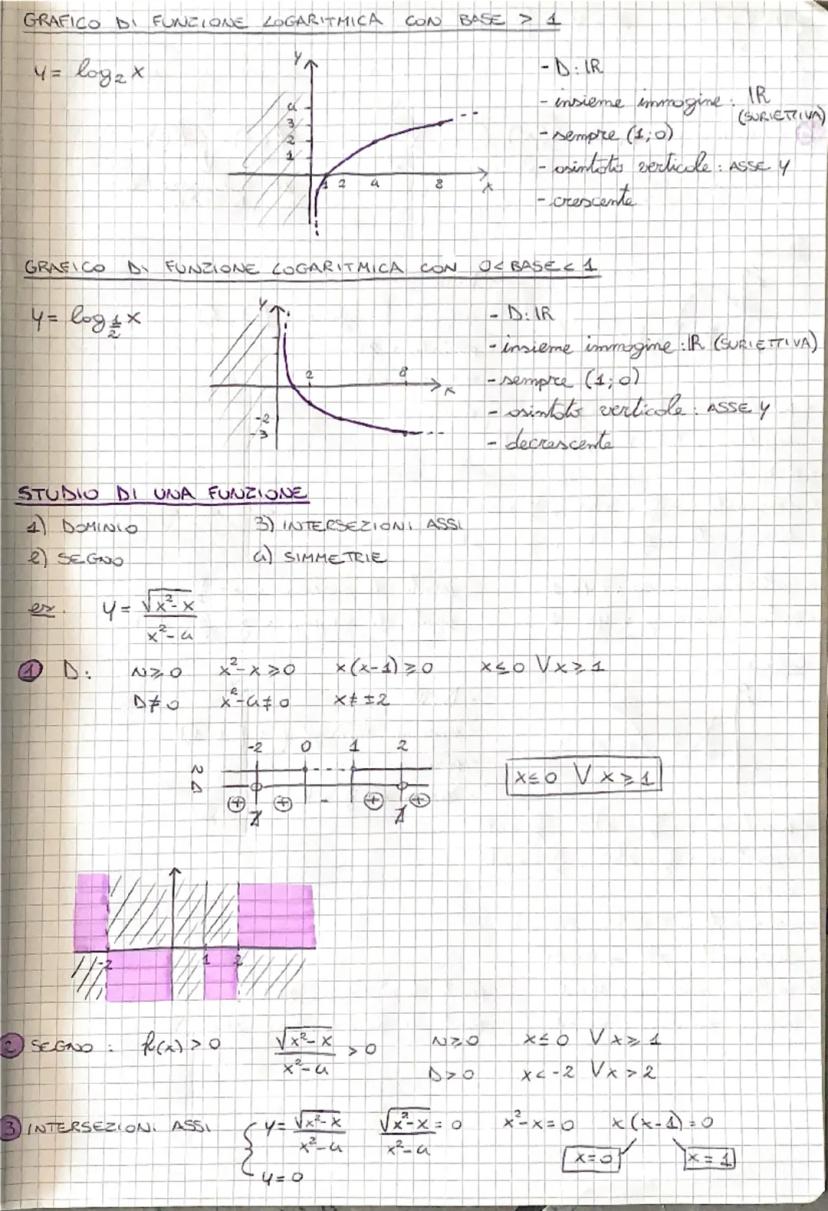 GRAFICO DI FUNZIONE LOGARITMICA CON BASE > 1
y = log₂ x
- D: IR
- insieme immagine: IR (SURIETTIVA)
- sempre (1;0)
- asintoto verticale: ASSE y
- crescente
y
4
3
2
1
1 2 4 8 x
GRAFICO DI FUNZIONE LOGARITMICA CON 0<BASE<1
y = log_{1/2} x
- D: IR
- insieme immagine: IR (SURIETTIVA)
- sempre (1;0)
- asintoto verticale: ASSE y
- decrescente
y
2 8 x
-2
-3
STUDIO DI UNA FUNZIONE
1) DOMINIO 3) INTERSEZIONI ASSI
2) SEGNO 4) SIMMETRIE
es. y = √(x²-x) / (x²-4)
1 D: N≥0 x²-x≥0 x(x-1)≥0 x≤0 V x≥1
D≠0 x²-4≠0 x≠±2
-2 0 1 2
N
D
+ + - + +
x≤0 V x≥1
-2 1 2
2 SEGNO: f(x)>0 √(x²-x) / (x²-4) >0 N≥0 x≤0 V x≥1
D>0 x<-2 V x>2
3 INTERSEZIONI ASSI { y = √(x²-x) / (x²-4) √(x²-x) / (x²-4) = 0 x²-x=0 x(x-1)=0
y=0 x=0 x=1